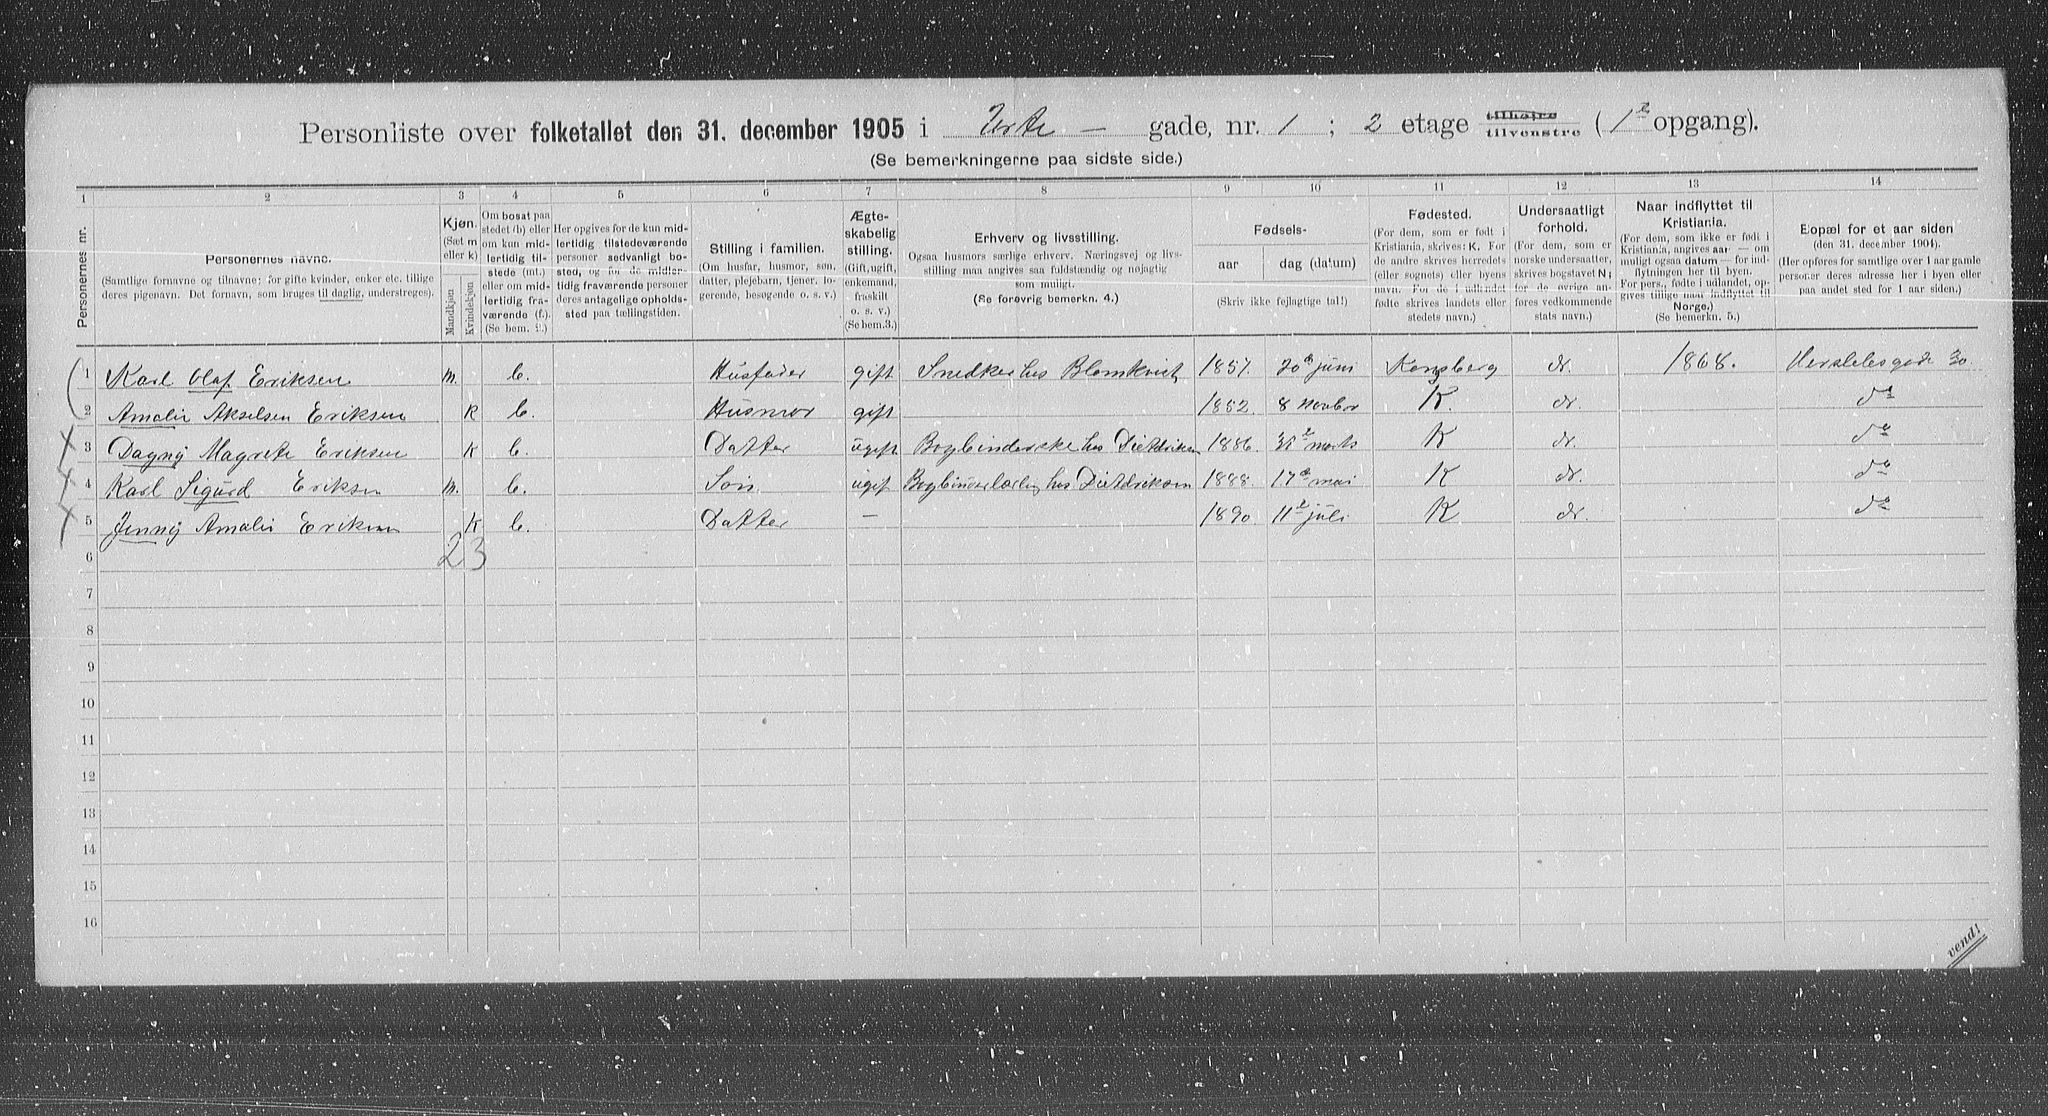 Personliste over folketallet den 31. december 1905 i Urte - gade, nr. 1 ; 2 etage tilhøire tilvenstre ( 1ste opgang).
(Se bemerkningerne paa sidste side.)
1 2 3 4 5 6 7 8 9 10 11 12 13 14
Personernes nr.
Personernes navne.
(Samtlige fornavne og tilnavne; for gifte kvinder, enker etc. tillige
deres pigenavn. Det fornavn, som bruges til daglig, understreges).
Kjøn.
(Sæt m
eller k)
Mandkjøn
Kvindekjøn
Om bosat paa
stedet (b) eller
om kun mid-
lertidig til-
stede (mt.)
eller om mid-
lertidig fra-
værende (f.)
(Se bem. 2.)
Her opgives for de kun mid-
lertidig tilstedeværende
personer sedvanligt bo-
sted, og for de midler-
tidig fraværende personer
deres antagelige opholds-
sted paa tællingstiden.
Stilling i familien.
(Om husfar, husmor, søn,
datter, plejebarn, tjener, lo-
gerende, besøgende o. s. v.)
Ægte-
skabelig
stilling.
(Gift, ugift,
enkemand,
fraskilt
o. s. v.)
(Se bem.3.)
Erhverv og livsstilling.
Ogsaa husmors særlige erhverv. Næringsvej og livs-
stilling maa angives saa fuldstændig og nøjagtig
som muligt.
(Se forøvrig bemerkn. 4.)
Fødsels-
aar
dag (datum)
(Skriv ikke fejlagtige tal!)
Fødested.
(For dem, som er født i
Kristiania, skrives: K. For
de andre skrives herredets
(eller sognets) eller byens
navn. For de i udlandet
fødte skrives landets eller
stedets navn.)
Undersaatligt
forhold.
(For dem, som er
norske undersaatter,
skrives bogstavet N;
for de øvrige an-
føres vedkommende
stats navn.)
Naar indflyttet til
Kristiania.
(For dem, som ikke er født i
Kristiania, angives aar — om
muligt ogsaa datum — for ind-
flytningen her til byen.
For pers., fødte i udlandet, op-
gives tillige naar indflyttet til
Norge.)
(Se bemerkn. 5.)
Bopæl for et aar siden
(den 31. december 1904).
(Her opføres for samtlige over 1 aar gamle
personer deres adresse her i byen eller
paa andet sted for 1 aar siden.)
1 Karl Olaf Eriksen m. b. Husfader gift Snedker hos Blomkvist 1857. 20de juni Kongsberg n. 1868. Herslebsgade 30.
2 Amalie Akselsen Eriksen K b. Husmor gift 1852. 8 novbr K. n. do
3 Dagny Magrete Eriksen K b. Datter ugift Bogbinderske hos Dietrikson 1886. 31te marts K n. do
4 Karl Sigurd Eriksen m. b. Søn ugift Bogbinderlærling hos Dietdrikson 1888. 17de mai K n. do
5 Jenny Amalie Eriksen K b. Datter — 1890. 11te juli K n. do
6 2 3
7
8
9
10
11
12
13
14
15
16
vend!